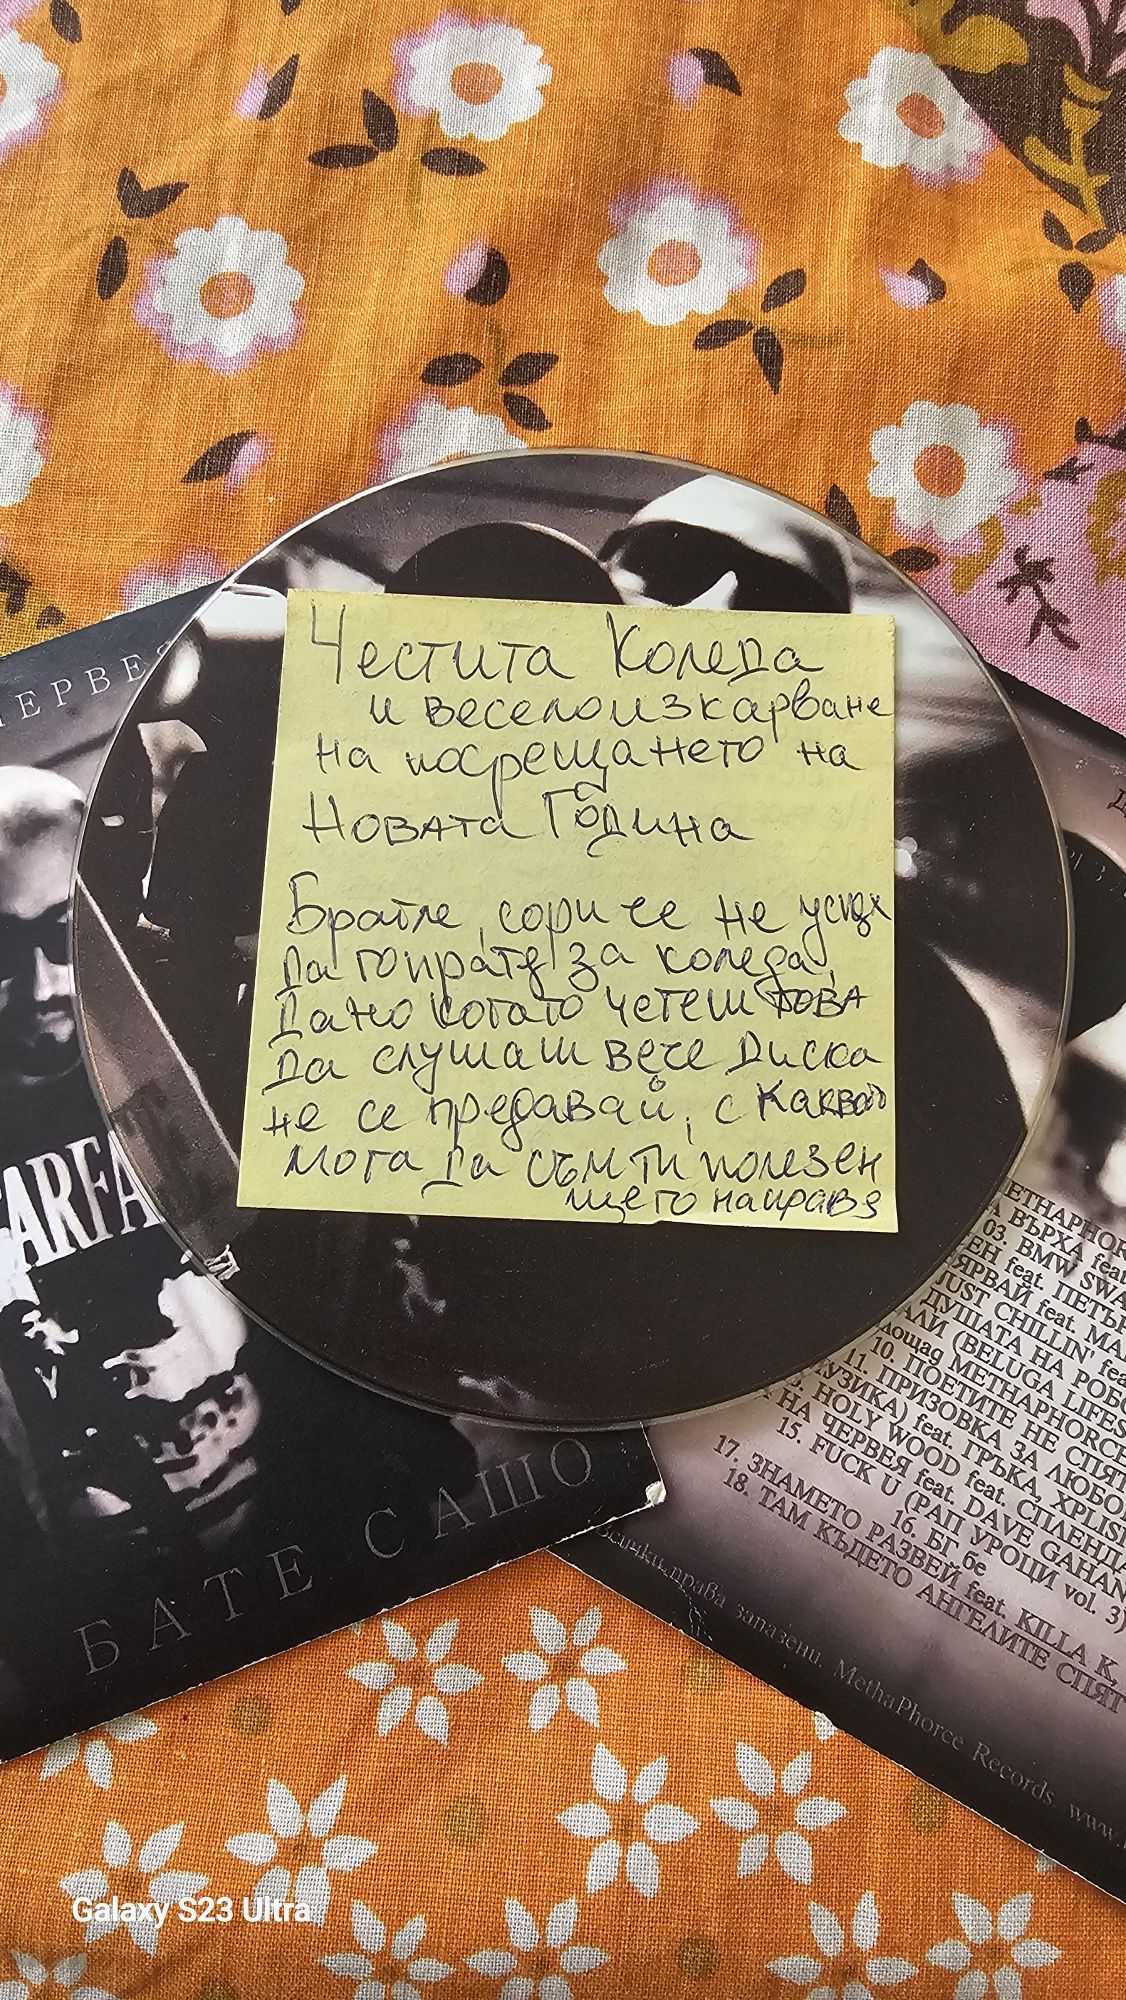 Честита Коледа
и веселоизкарване
на посрещането на
Новата Година
Братле, сори че не успях
да го пратя за коледа,
Дано когато четеш това
да слушаш вече диска
не се предавай, с каквото
мога да съм ти полезен
ще го направя
ЧЕРВЕЯ
ARFA
БАТЕ САШО
METHAPHOR
ВЪРХА feat
03. BMW SWA
ЕН feat. ПЕТЪР
ЯРВАЙ feat. МА
JUST CHILLIN' fea
ДУШАТА НА РОБО
АЛИ (BELUGA LIFES
площад METHAPHORCE
10. ПОЕТИТЕ НЕ СПЯТ
11. ПРИЗОВКА ЗА ЛЮБО
УЗИКА) feat. ГРЪКА, XPLIS
HOLY WOOD feat. СПЛЕНДИ
НА ЧЕРВЕЯ feat. DAVE GAHAN
15. FUCK U (РАП УРОЦИ vol. 3)
16. БГ бе
17. ЗНАМЕТО РАЗВЕЙ feat. KILLA K,
18. ТАМ КЪДЕТО АНГЕЛИТЕ СПЯТ
Всички права запазени. MethaPhorce Records. www.
Galaxy S23 Ultra